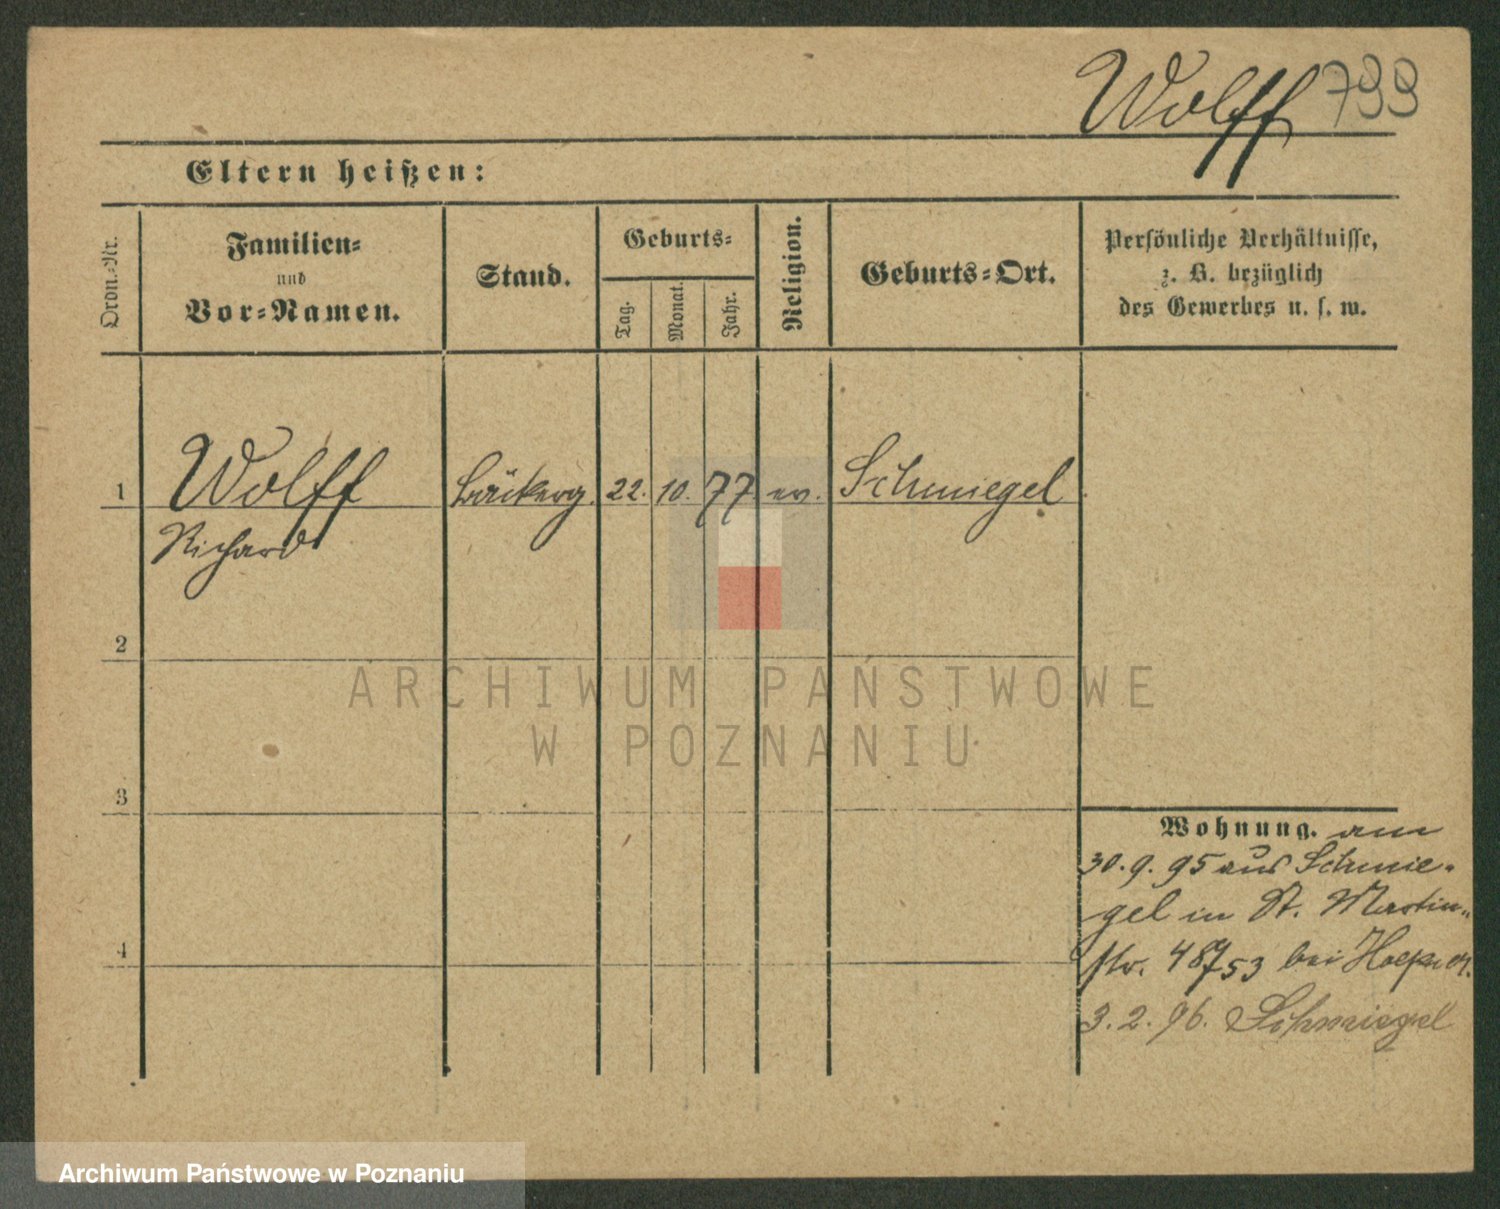 Wolff 799
Eltern heißen:
Ordn.-Nr.
Familien-
und
Vor-Namen.
Stand.
Geburts-
Tag.
Monat.
Jahr.
Religion.
Geburts-Ort.
Persönliche Verhältnisse,
z. B. bezüglich
des Gewerbes u. s. w.
1 Wolff Bäckerg. 22. 10. 77 ev. Schmiegel
Richard
2
ARCHIWUM PAŃSTWOWE
W POZNANIU
3
Wohnung. am
30.9.95 aus Schmie-
gel in St. Martin-
4
str. 48/53 bei
3.2.96. Schmiegel
Archiwum Państwowe w Poznaniu